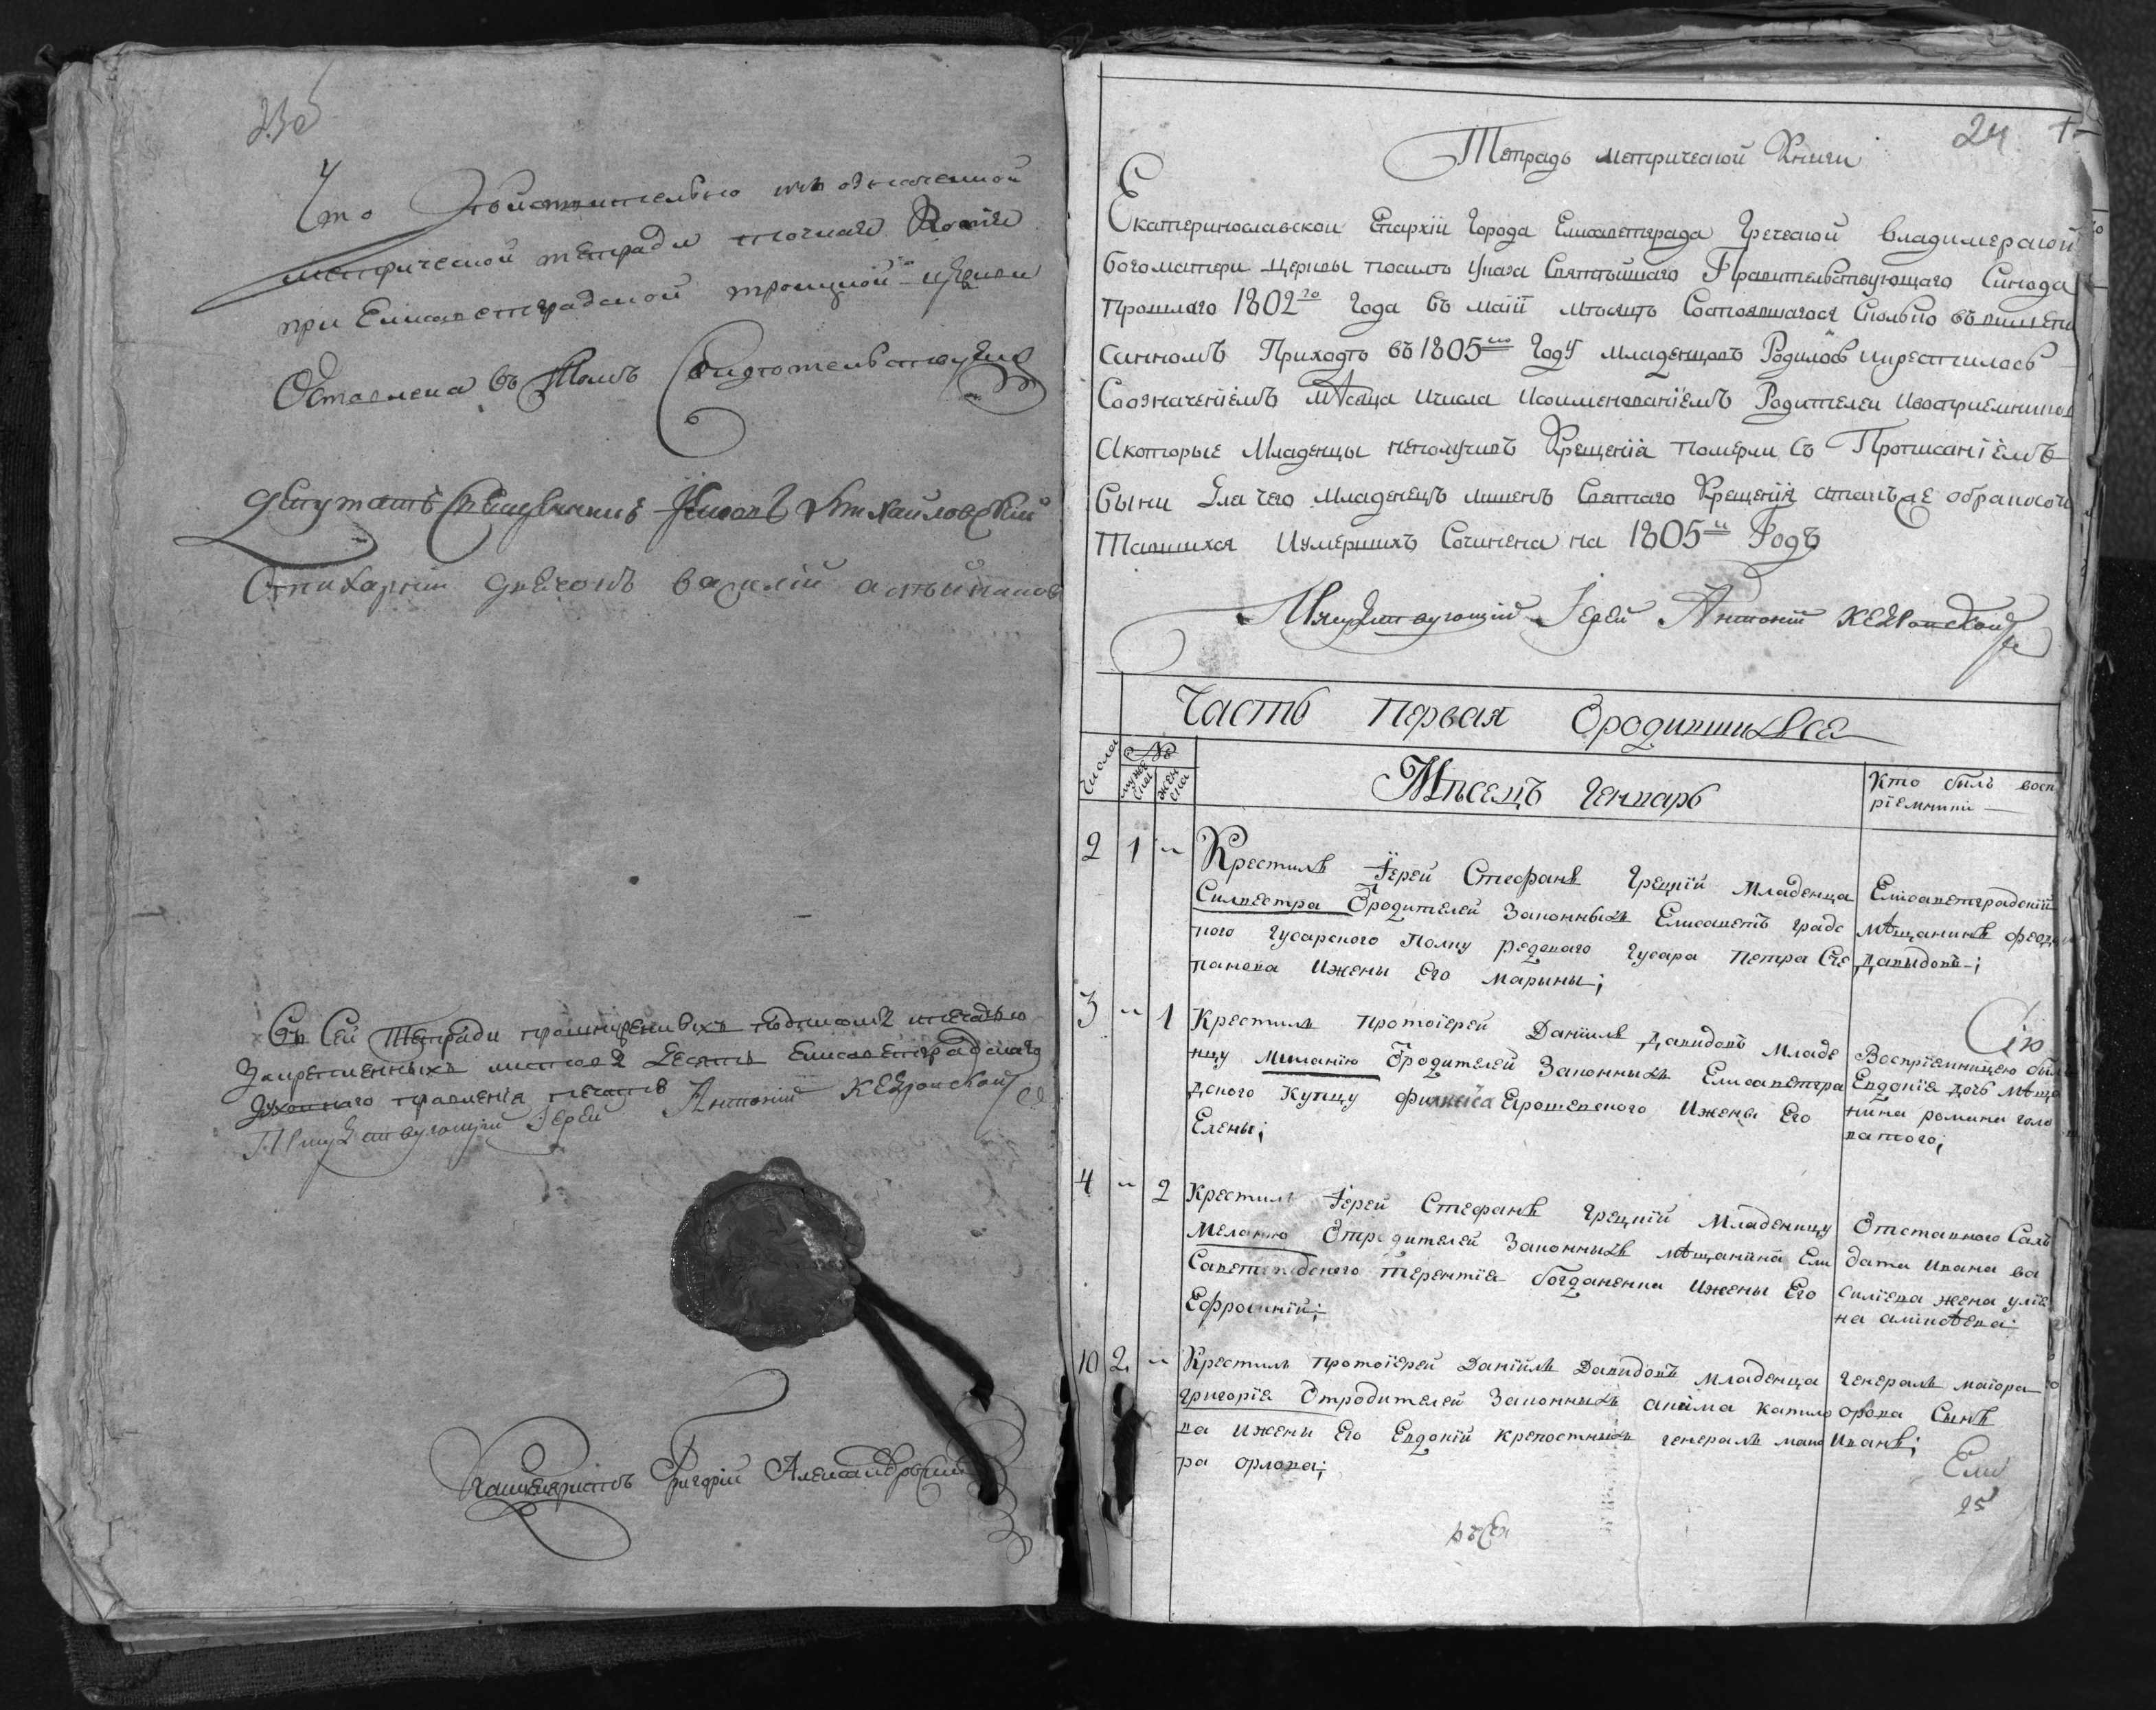 23об
Что действительно изъ означенной
метрической тетради точная Копїя
при Елисаветградской троицкой церкви
Оставлена въ Томъ Свидѣтельствую
депутатъ Священникъ Михайловскїй
Стихарнїй дьячокъ василїй
Въ Сей Тетради прошнуренныхъ подписомъ ипечатью
Укрепленныхъ листовъ Десять Елисаветградскаго
духовнаго правленїя печать
Присудствующїй Іерей Антонїй
Канцеляристъ Григорїй Александровскїй
24
Тетрадь метрической Книги
Екатеринославской Епархїи Города Елисаветграда Греческой владимерской
богоматери церквы посилѣ Указа Святѣйшаго Правительствующаго Синода
Прошлаго 1802го Года въ маїи мѣсяцѣ Состоявшагося Сколько въвишепи
санномъ Приходѣ въ 1805мъ Году младенцовъ Родилось икрестилось
Соозначенїемъ мѣсяца Ичисла Исоименованїемъ Родителеи Ивоспрїемниковъ
Икоторые Младенцы неполучивъ Крещенїя померли Съ Прописанїемъ
Выни Для чего младенецъ лишенъ Святаго Крещенїя также обракосоче
Тавшихся Иумершихъ Сочинена на 1805й Годъ
Присудствующїй Іерей Антонїй
Часть Первая Ородившихся
Числа
№
мужеска
женска
Мѣсецъ Генварь
Кто былъ восп
рїемники
2 1 „ Крестилъ Їерей Стефанъ Грецкїй Младенца
Силвестра Ѿродителей Законныхъ Елисаветъ градс
кого Гусарского Полку редоваго Гусара Петра Сте
панова Ижены Его Марыны;
Елисаветградскїй
мѣщанинъ
Давыдовъ;
3 „ 1 Крестилъ Протоїерей Данїилъ Давидовъ Младе
нцу Миланїю Ѿродителей Законныхъ Елисаветгра
дского Купцу Ерошевского Ижены Его
Елены;
Воспрїемницею была
Евдокїя дочь мѣща
нина романа голо
ватого;
4 „ 2 Крестилъ Їерей Стефанъ Грецкїй Младеницу
Меланїю Ѿтродителей Законныхъ мѣщанина Ели
Саветградского терентїя богданенка Ижены Его
Ефросинїи;
Отставного Сал
дата Ивана ва
силїева жена улїя
на
10 2 „ Крестилъ протоїерей Данїилъ Давидовъ младенца
григорїя Ѿтродителей Законныхъ акима капило
ва Ижены Его Евдокїи крепостныхъ генералъ маїо
ра орлова;
Генералъ маїора
орова Сынъ
Иванъ;
Ели
25